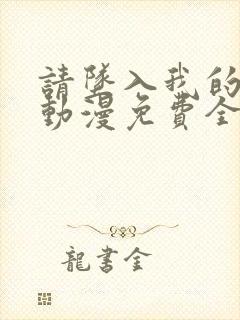 請墜入我的
動漫免費全
龍書金